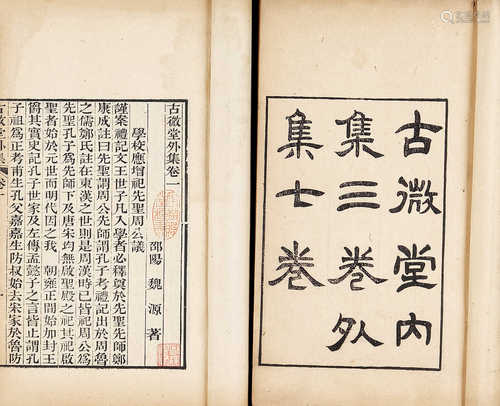 古微堂內
集三卷外
集七卷
古微堂外集卷一
邵陽 魏源 著
學校應增祀先聖周公議
謹案禮記文王世子凡入學者必釋奠於先聖先師鄭
康成註曰先聖謂周公先師謂孔子考禮記出於周魯
之儒鄭氏註在東漢之世則是周漢時已皆祀周公為
先聖孔子為先師下及唐宋均無啟聖殿之祀其祀啟
聖者始於元世而明代因之我 朝雍正間始加封王
爵其實史記孔子世家及左傳孟懿子之言皆止謂孔
子祖為正考甫生孔父嘉嘉生防叔始去宋家於魯防
古微堂外集 卷一 一